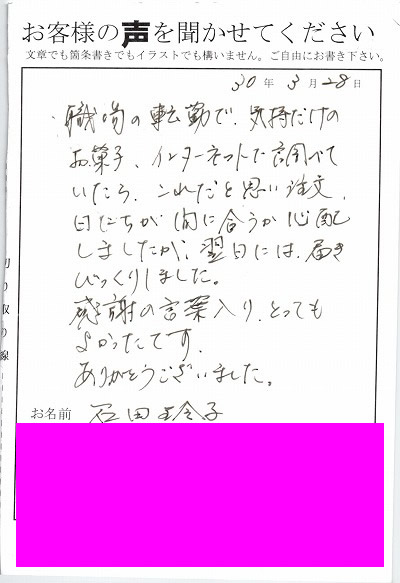 お客様の声を聞かせてください
文章でも箇条書きでもイラストでも構いません。ご自由にお書き下さい。
30年3月28日
職場の転勤で、気持だけの
お菓子、インターネットで調べて
いたら、これだと思い注文、
日にちが間に合うか心配
しましたが、翌日には届き
びっくりしました。
感謝の言葉入り、とっても
よかったです、
ありがとうございました。
切り取り線
お名前 石田玲子